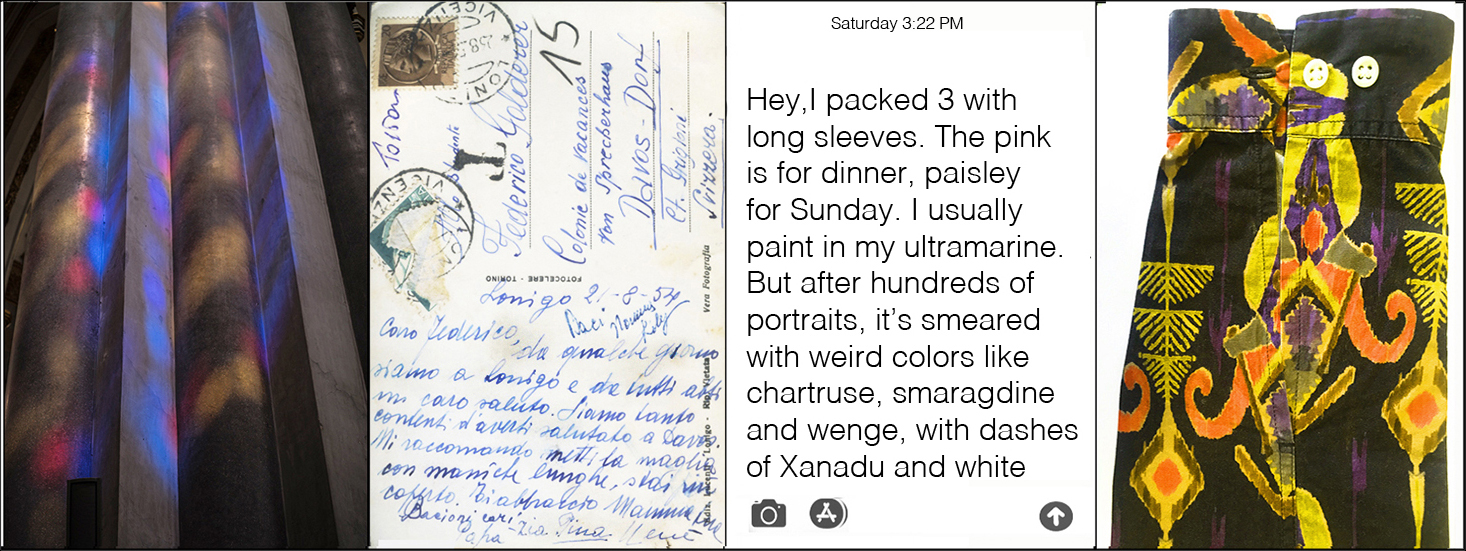 15
Federico Golderer
Colonie de vacances
von Sprecherhaus
Davos-Dorf
Ct. Grigioni
Svizzera.
T
FOTOCELERE - TORINO
Vera Fotografia
Lonigo 21-8-54
Baci
Caro Federico,
da qualche giorno
siamo a Lonigo e da tutti
un caro saluto. Siamo tanto
contenti d'averti salutato a Davos.
Mi raccomando metti la maglia
con maniche lunghe, stai
coperto. Ti abbraccio Mamma
Bacioni cari
Papà Zia Pina
Saturday 3:22 PM
Hey,I packed 3 with
long sleeves. The pink
is for dinner, paisley
for Sunday. I usually
paint in my ultramarine.
But after hundreds of
portraits, it’s smeared
with weird colors like
chartruse, smaragdine
and wenge, with dashes
of Xanadu and white